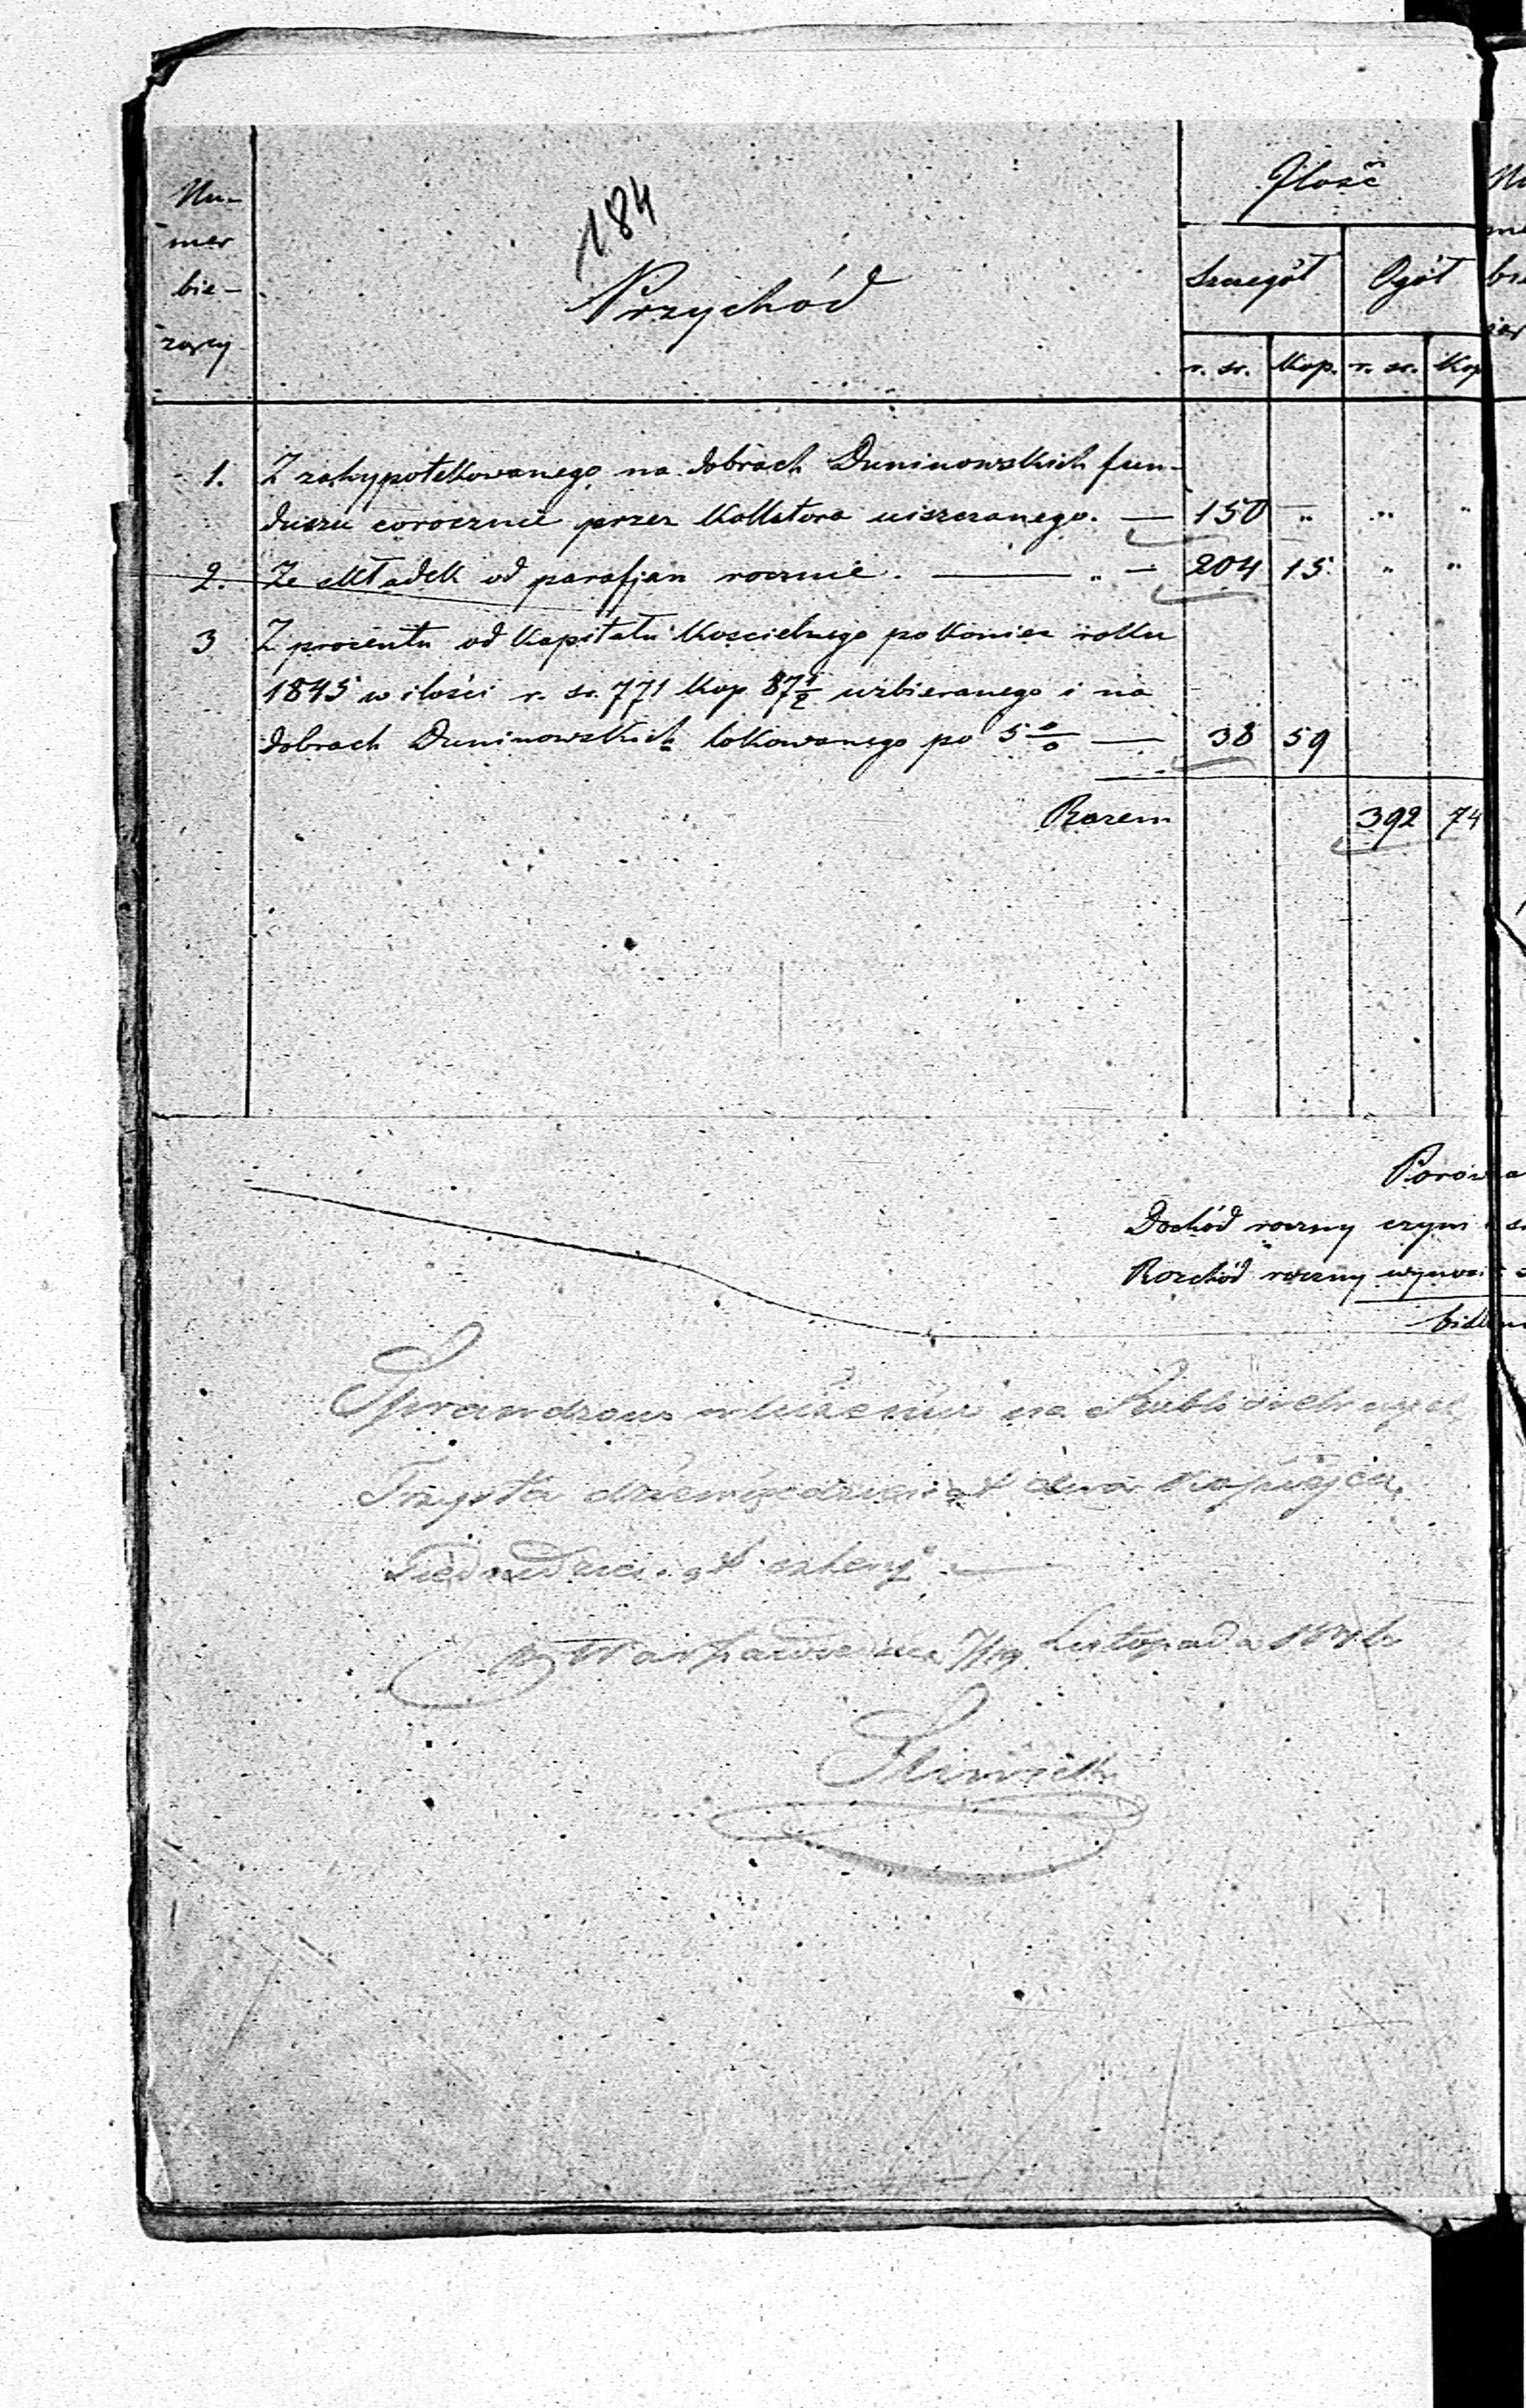 184
Nu-
mer
bie-
żący
Przychód
Jlość
Szczegół
Ogół
r. sr.
Kop.
r. sr.
Kop
1. Z zahypotekowanego na dobrach Duninowskich fun-
duszu corocznie przez Kollatora uiszczanego. — 150 " " "
2. Ze składek od parafjan rocznie. — " — 204 15 " "
3 Z procentu od Kapitału Kościelnego po koniec roku
1845 w ilości r. sr. 771 Kop 87½ uzbieranego i na
dobrach Duninowskich lokowanego po 5 % — 38 59
Razem 392 74
Dochód roczny czyni
Rozchód roczny wynosi
Sprawdzono na Rubli
Trzysta dziewięćdziesiąt dwa Kopiejek
Siedmdziesiąt cztery —
w Warszawie dnia 7/19 Listopada